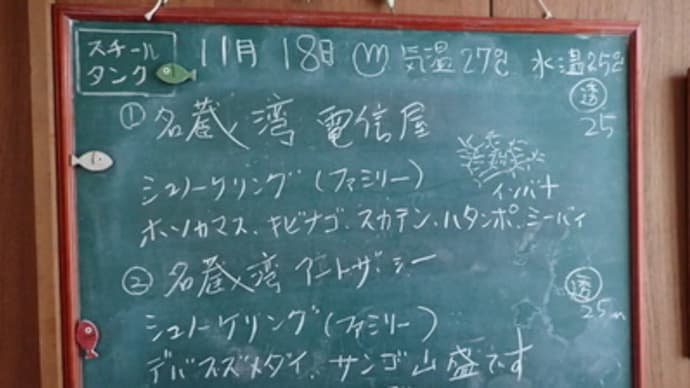 スチール
タンク
11月 18日 気温27℃ 水温25℃
① 名蔵湾 電信屋
透
25
シュノーケリング(ファミリー)
イソバナ
ホソカマス、キビナゴ、スカテン、ハタンポ、ミーバイ
② 名蔵湾 アートザ・シー
透
25m
シュノーケリング(ファミリー)
デバスズメダイ、サンゴ山盛です